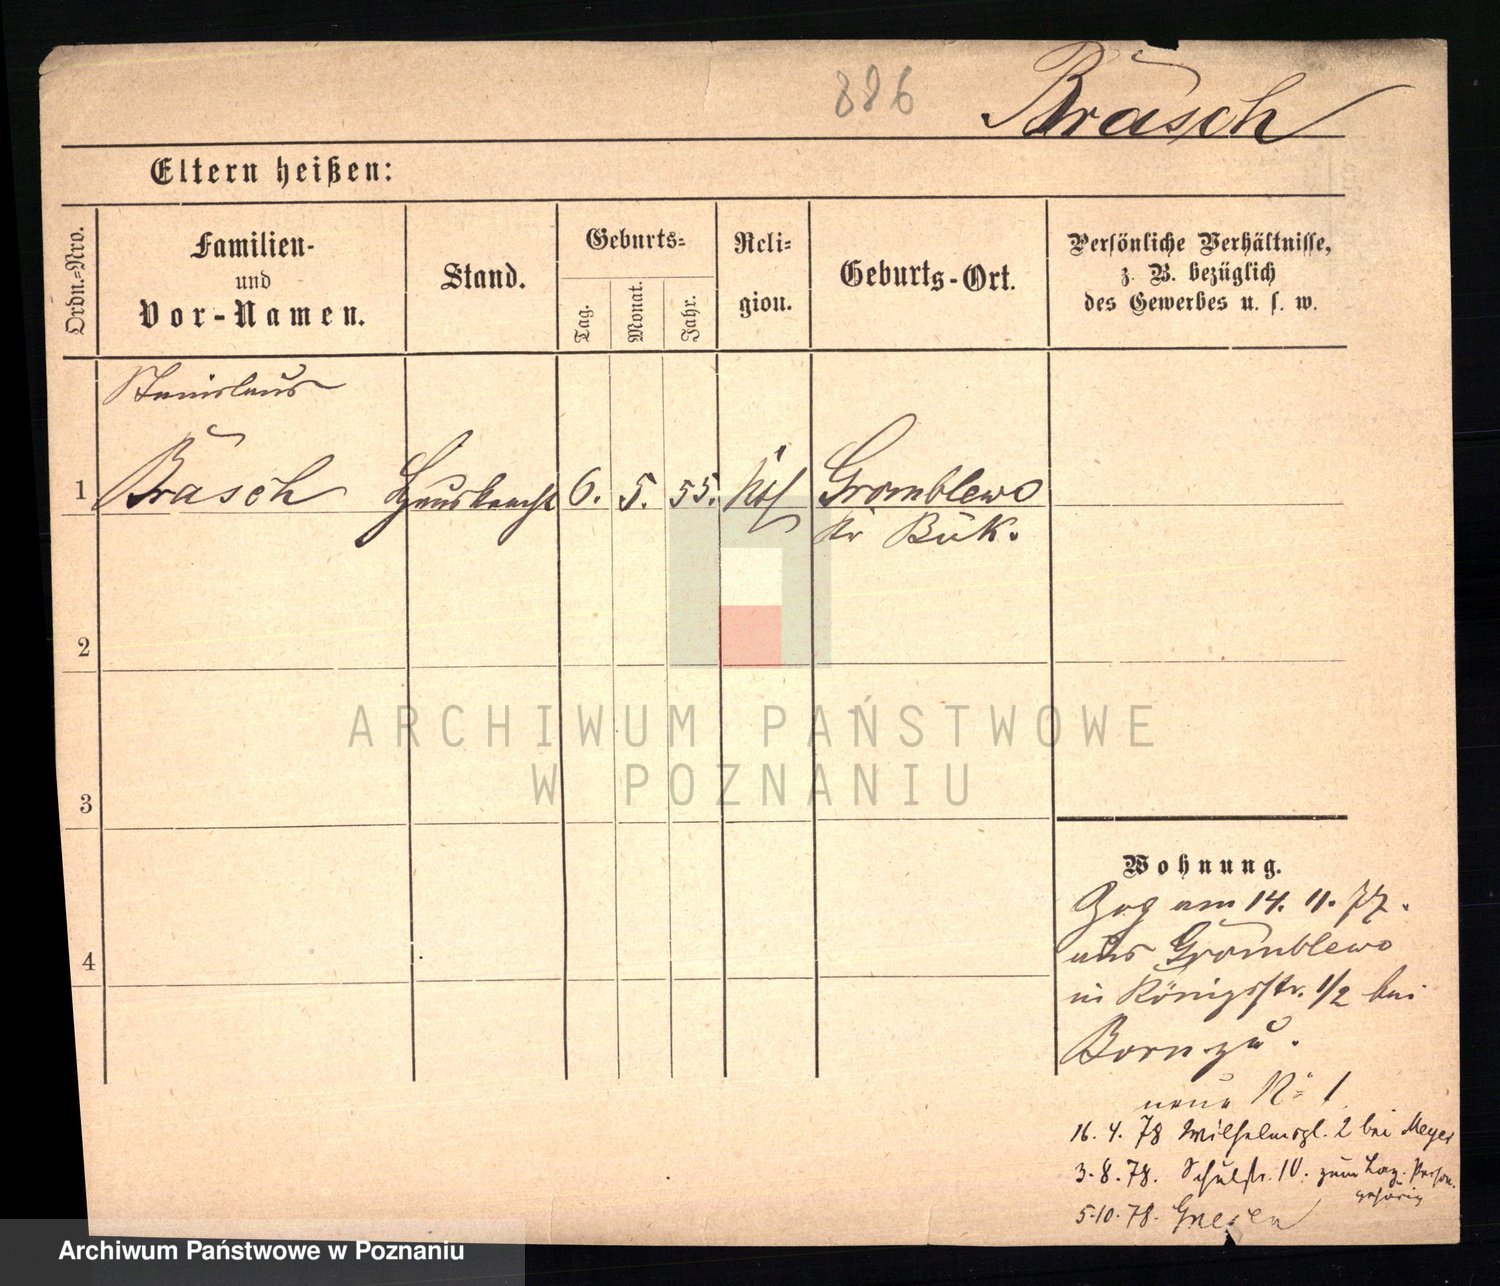 886
Bräsch
Eltern heißen:
Ordn.-Nro.
Familien-
und
Vor-Namen.
Stand.
Geburts-
Tag.
Monat.
Jahr.
Reli-
gion.
Geburts-Ort.
Persönliche Verhältnisse,
z. B. bezüglich
des Gewerbes u. s. w.
Stanislaus
1 Bräsch Hausknecht 6. 5. 55. Kth Gromblewo
Kr Buk.
2
3
4
ARCHIWUM PAŃSTWOWE
W POZNANIU
Wohnung.
Zog am 14. 11. 77.
aus Gromblewo
in Königsstr. 1/2 bei
Born zu.
neue No 1
16. 4. 78 Wilhelmspl. 2 bei Meyer
3. 8. 78. Schulstr. 10. zum Laz. Person.
gehörig
5.10.78. Gnesen
Archiwum Państwowe w Poznaniu